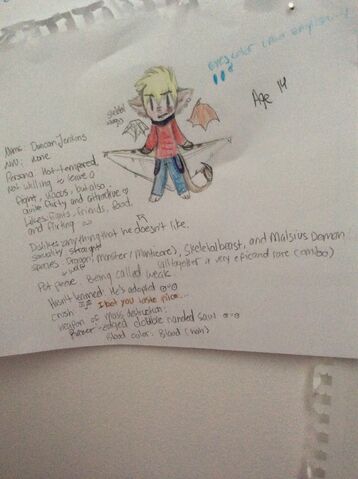 Eyes color
Age 14
skeletal
wings
Name: Duncan Jenkins
none
Persona: Hot-tempered,
not willing to leave a
fight, but also
quite flirty and attractive
Likes: Fights, Friends, food,
and flirting
Dislikes: anything that he doesn't like.
sexuality: straight
species: Dragon, monster (Manticore), Skeletal beast, and Malsius Demon
(all together a very epic and rare combo)
Pet peeve: Being called weak
Hasn't learned: He's adopted o-o
crush: I bet you
weapon of mass destruction:
edged double handed saw o-o
Blood color: Blood